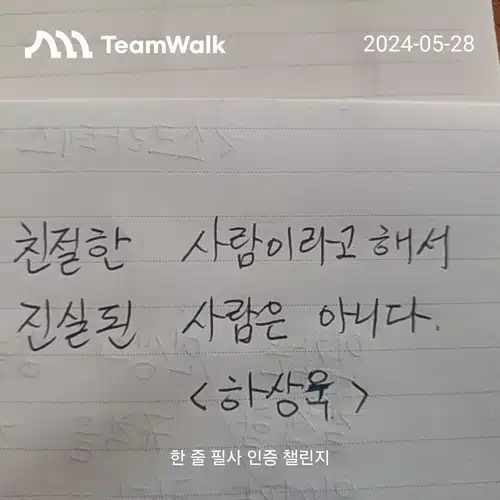 TeamWalk
2024-05-28
친절한 사람이라고 해서
진실된 사람은 아니다.
<하상욱>
한 줄 필사 인증 챌린지